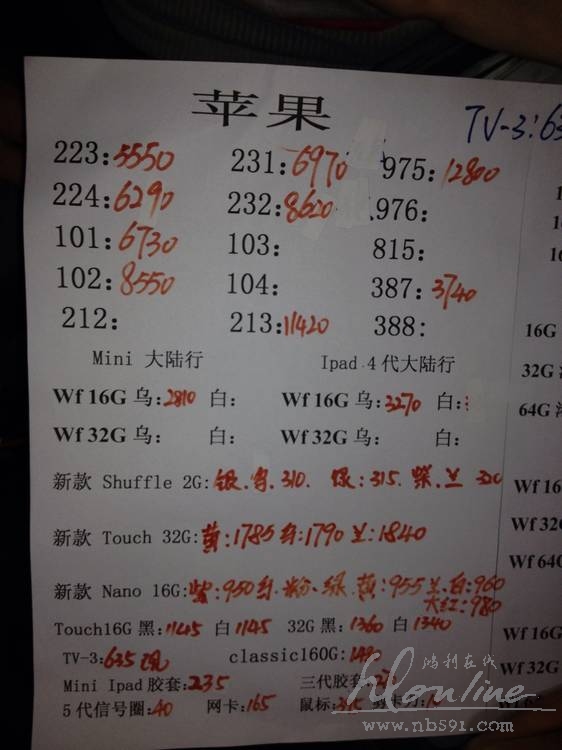 苹果
TV-3:63
223:5550 231:6970 975:12800
224:6290 232:8620 976:
101:6730 103: 815:
102:8550 104: 387:3740
212: 213:11420 388:
Mini 大陆行 Ipad 4代大陆行
Wf 16G 乌:2810 白: Wf 16G 乌:3270 白:
Wf 32G 乌: 白: Wf 32G 乌: 白:
新款 Shuffle 2G:银. 310. 绿:315. 紫. 兰 320
新款 Touch 32G:黄:1785 红:1790 兰:1840
新款 Nano 16G:紫:950 红. 粉. 绿. 黄:955 兰. 白:960
大红:980
Touch16G 黑:1145 白1145 32G 黑:1360 白1340
TV-3:635现 classic160G:
Mini Ipad胶套:235 三代胶套:
5代信号圈:40 网卡:165 鼠标:
16G
32G
64G
Wf 16
Wf 32G
Wf 64G
Wf 16G
Wf 32G
鸿利在线
hlonline
www.nb591.com